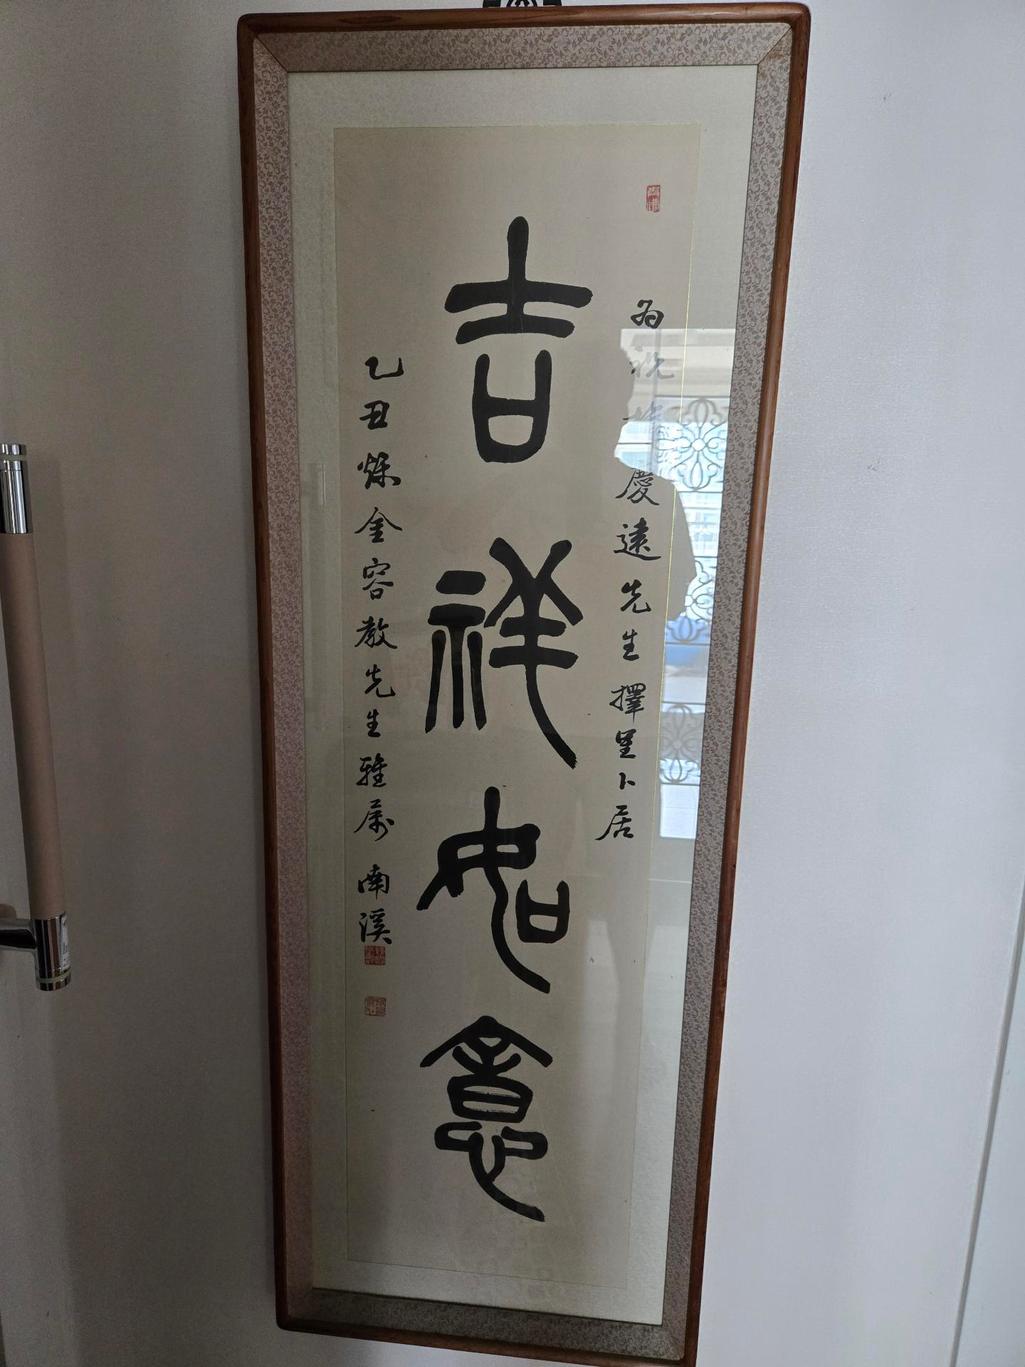 為祝 慶遠先生擇里卜居
吉祥如意
乙丑烁金容教先生雅属 南溪